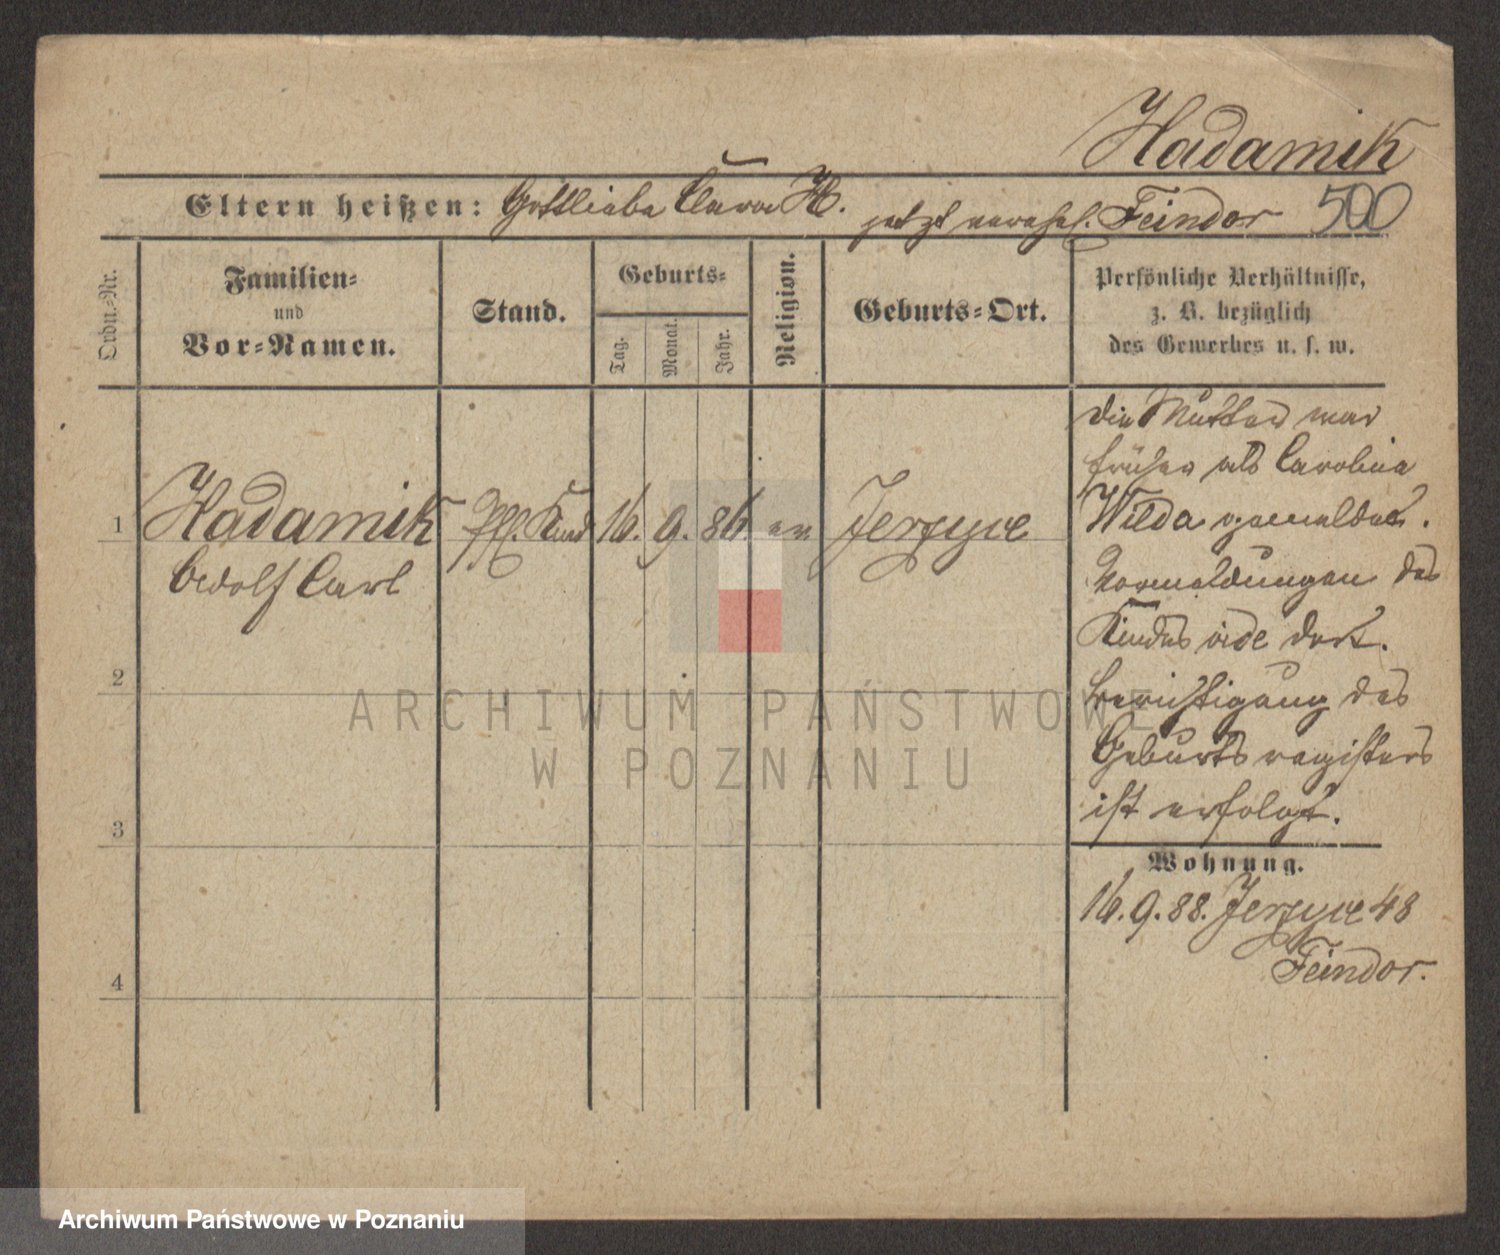 Hadamik
Eltern heißen: Gottliebe Clara H. jetzt verehel. Feindor 500
Ordn.-Nr.
Familien-
und
Vor-Namen.
Stand.
Geburts-
Tag.
Monat.
Jahr.
Religion.
Geburts-Ort.
Persönliche Verhältnisse,
z. B. bezüglich
des Gewerbes u. s. w.
1 Hadamik Pfl. Kind 16. 9. 86. ev. Jerzyce
Adolf Carl
2
3
4
Die Mutter war
früher als Carolina
Wilda gemeldet.
Vormeldungen des
Kindes vide dort.
Berichtigung des
Geburtsregisters
ist erfolgt.
Wohnung.
16.9.88. Jerzyce 48
Feindor.
ARCHIWUM PAŃSTWOWE
W POZNANIU
Archiwum Państwowe w Poznaniu